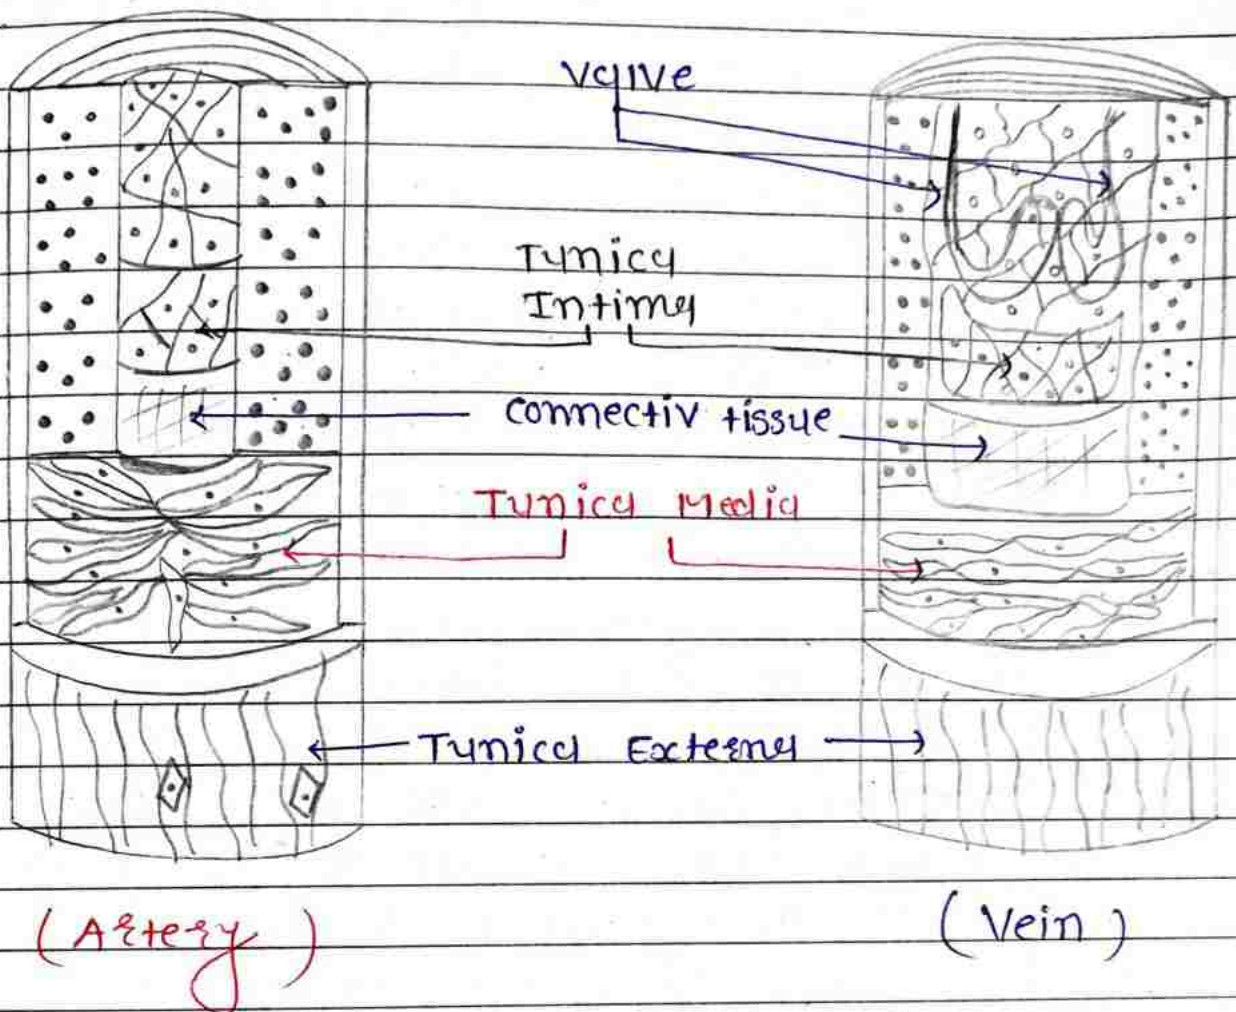 Valve
Tunica
Intima
connectiv tissue
Tunica Media
Tunica Externa
(Artery)
(Vein)